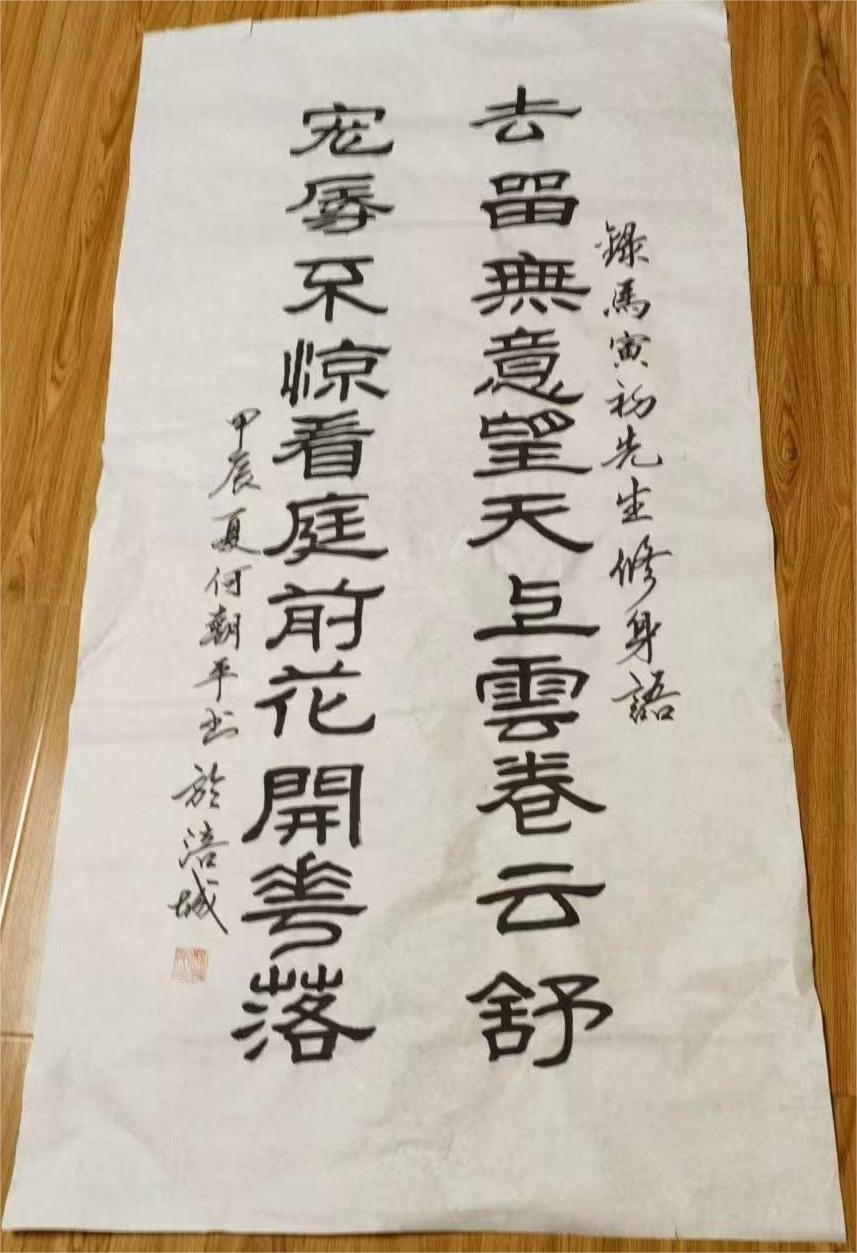 錄馬寅初先生修身語
去留無意望天上雲卷云舒
宠辱不惊看庭前花開華落
甲辰夏何朝平书於涪城